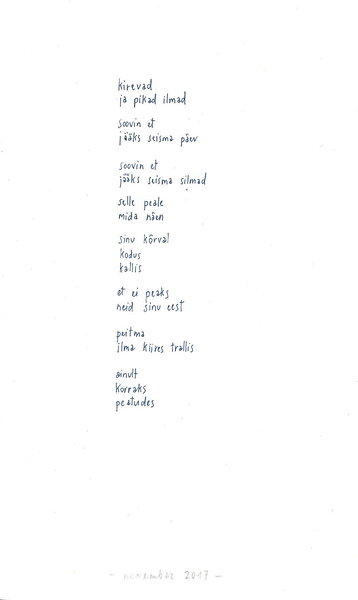 kirevad
ja pikad ilmad
soovin et
jääks seisma päev
soovin et
jääks seisma silmad
selle peale
mida näen
sinu kõrval
kodus
kallis
et ei peaks
neid sinu eest
peitma
ilma kiires trallis
ainult
korraks
peatudes
- november 2017 -